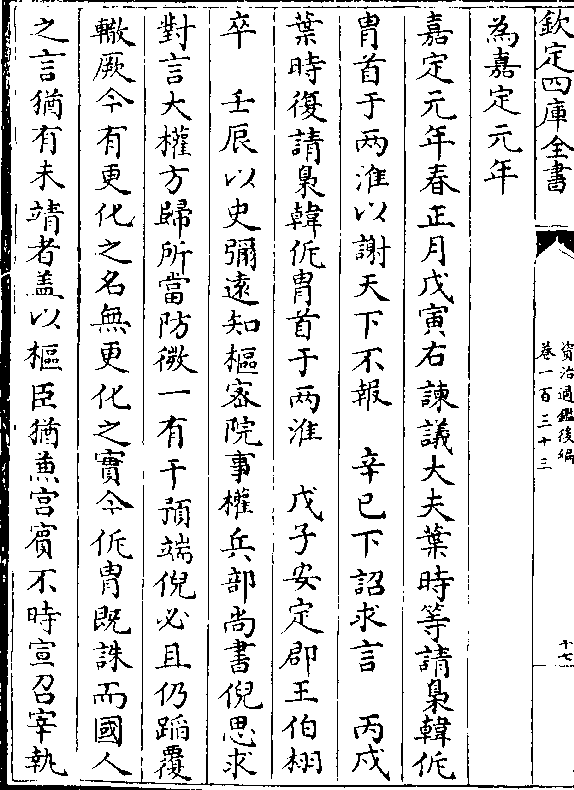 欽定四庫全書
資治通鑑後編
卷一百三十三
十七
為嘉定元年
嘉定元年春正月戊寅右諫議大夫葉時等請梟韓侂
胄首于两淮以謝天下不報　辛巳下詔求言　丙戌
葉時復請梟韓侂胄首于两淮　戊子安定郡王伯栩
卒　壬辰以史彌遠知樞宻院事權兵部尚書倪思求
對言大權方歸所當防微一有干預端倪必且仍蹈覆
轍厥今有更化之名無更化之實今侂胄既誅而國人
之言猶有未靖者盖以樞臣猶兼宫賓不時宣召宰執